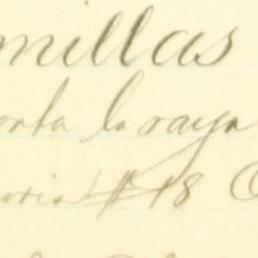 millas
orta la raya
oria #18